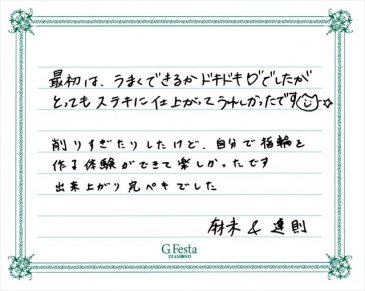 最初は、うまくできるかドキドキ♡でしたが
とってもステキに仕上がってうれしかったです☆
削りすぎたりしたけど、自分で指輪を
作る体験ができて楽しかったです
出来上がり完ペキでした
麻未 & 達則
G.Festa
DIAMOND